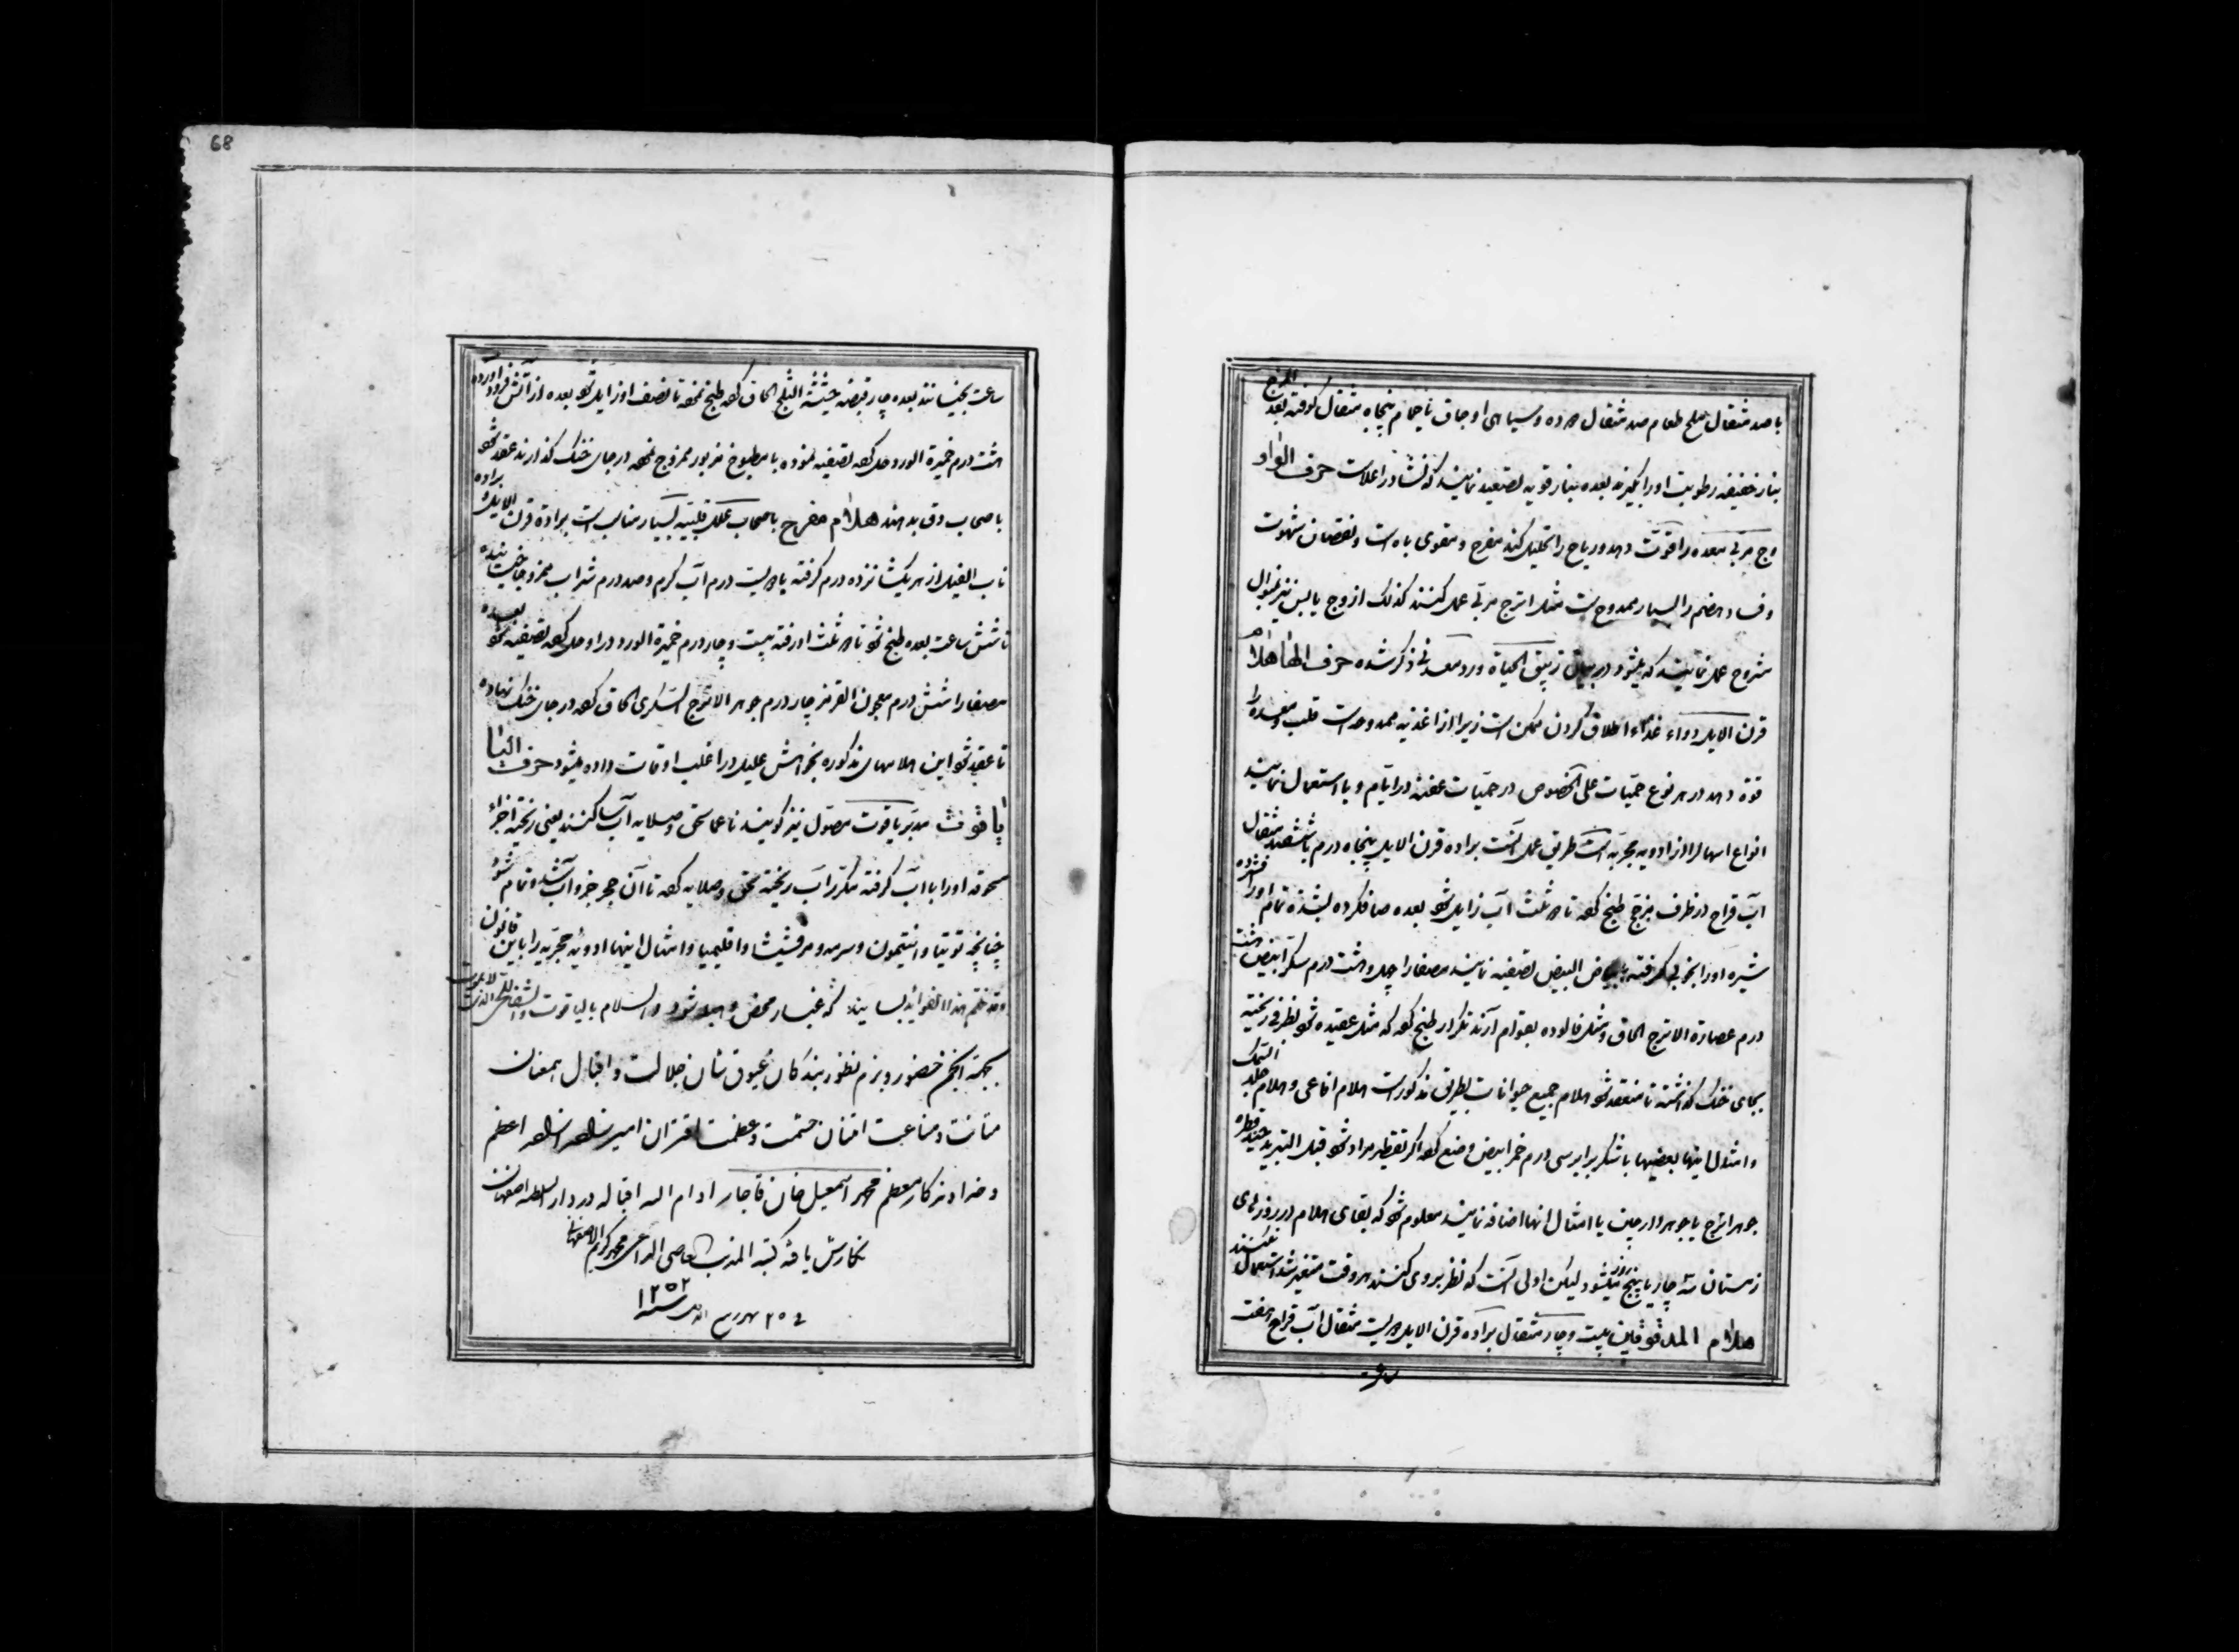 با صد مثقال ملح طعام صد مثقال و سیاهی اوجاق یا حمام پنجاه مثقال کوفته بعد المزج
بنار خفیفه رطوبت اورا بگیرند بعده بنار قویه تصعید نمایند که نشادر اعلاست حرف الواو
وج مربی معده را قوّت دهد و ریاح را تحلیل کند مفرح و مقوی باه است و نقصان شهوت
و فساد هضم را بسیار ممدوحست مثل اترج مربّی عمل کنند کذلک از وج یابس نیز بمنوال
مشروح عمل نمایند که میشود در بیان زیبق الحیاة و رد معدنی ذکر شده حرف الهاء هلام
قرن الایل دواء غذاء اطلاق کردن ممکن است زیرا از اغذیه ممدوحه است قلب و معده را
قوة دهد در هر نوع حمّیات علی الخصوص در حمّیات عفنه در ایّام وبا استعمال نمایند
انواع اسهالرا از ادویه مجرّبه است طریق عمل آنست براده قرن الایل پنجاه درم با ششصد مثقال
آب قراح در ظرف مزجّج طبخ کعه تا ثلث آب زایل شو بعده صاف کرده تمام اورا فشرده
شیره اورا بخوبی گرفته با بیاض البیض تصفیه نمایند مصفارا چهل و هشت درم سکر ابیض هشت
درم عصارة الاترج الحاق و مثل فالوده بقوام آرند تکرار طبخ کعه که مثل عقیده شو بظرفی ریخته
بجای خنک گذاشته تا منعقد شو هلام جمیع حیوانات بطریق مذکورست هلام افاعی و هلام جلد السمک
و امثال اینها بعضیها با شکر برابر سی درم خمر ابیض وضع کعه اگر تقطیر مراد شو قبل التبرید چند قطره
جوهر اترج یا جوهر دارچین یا امثال انها اضافه نمایند معلوم شو که بقای هلام در روزهای
زمستان سه چار یا پنج روز میشود لیکن اولی آنست که نظر بروی کنند هر وقت متغیر شد استعمال نکنند
هلام المدقوقین بیست و چار مثقال براده قرن الایل دویست مثقال آب قراح هفت
ساعت
68
ساعت بخیسانند بعده چار قبضه حشیشة الثلج الحاق کعه طبخ نمعه تا نصف او زایل شو بعده از آتش فرود آورده
هشت درم خمیرة الورد حل کعه تصفیه نموده با مطبوخ مزبور ممزوج نمعه در جای خنک گذارند عقد شو
باصحاب دق بدهند هلام مفرح باصحاب علل قلبیّه بسیار مناسب است براده قرن الایل براده
ناب الفیل از هر یک شانزده درم گرفته با دویست درم آب گرم و صد درم شراب ممزوجا خیسانیده
تا شش ساعت بعده طبخ شو تا دو ثلث اورفته بیست و چار درم خمیرة الورد در او حل کعه تصفیه شو بعده
مصفارا شش درم معجون القرمز چار درم جوهر الاترج السکری الحاق کعه در جای خنک نهاده
تا عقد شو این هلامهای مذکوره بخواهش علیل در اغلب اوقات داده میشود حرف الیاء
یاقوت مدبّر یاقوت مصول نیز گویند ناعما سحق و صلایه آب سا کنند یعنی ریخته اجزاء
مسحوقه اورا با آب گرفته مکرر آب ریخته سحق و صلایه کعه تا آن حجر جزو آب شده تمام شود
چنانچه توتیا و انتیمون و سرمه و مرقشیشا و اقلیمیا و امثال اینها ادویه حجریّه را باین قانون
بسایند که غبار محض و هبا شود والسلام
بجهة انجمن حضور و بزم منظور بندگان عیوق شان جلالت و اقبال همعنان
متانت و مناعت اقتران حشمت و عظمت اقتران امیر اعظم
و خداوندگار معظم محمد اسمعیل خان قاجار ادام الله اقباله در دار السلطنه اصفهان
نگارش یافت کتبه المذنب العاصی الداعی محمد کریم الاصفهانی
سنه ۱۲۵۲